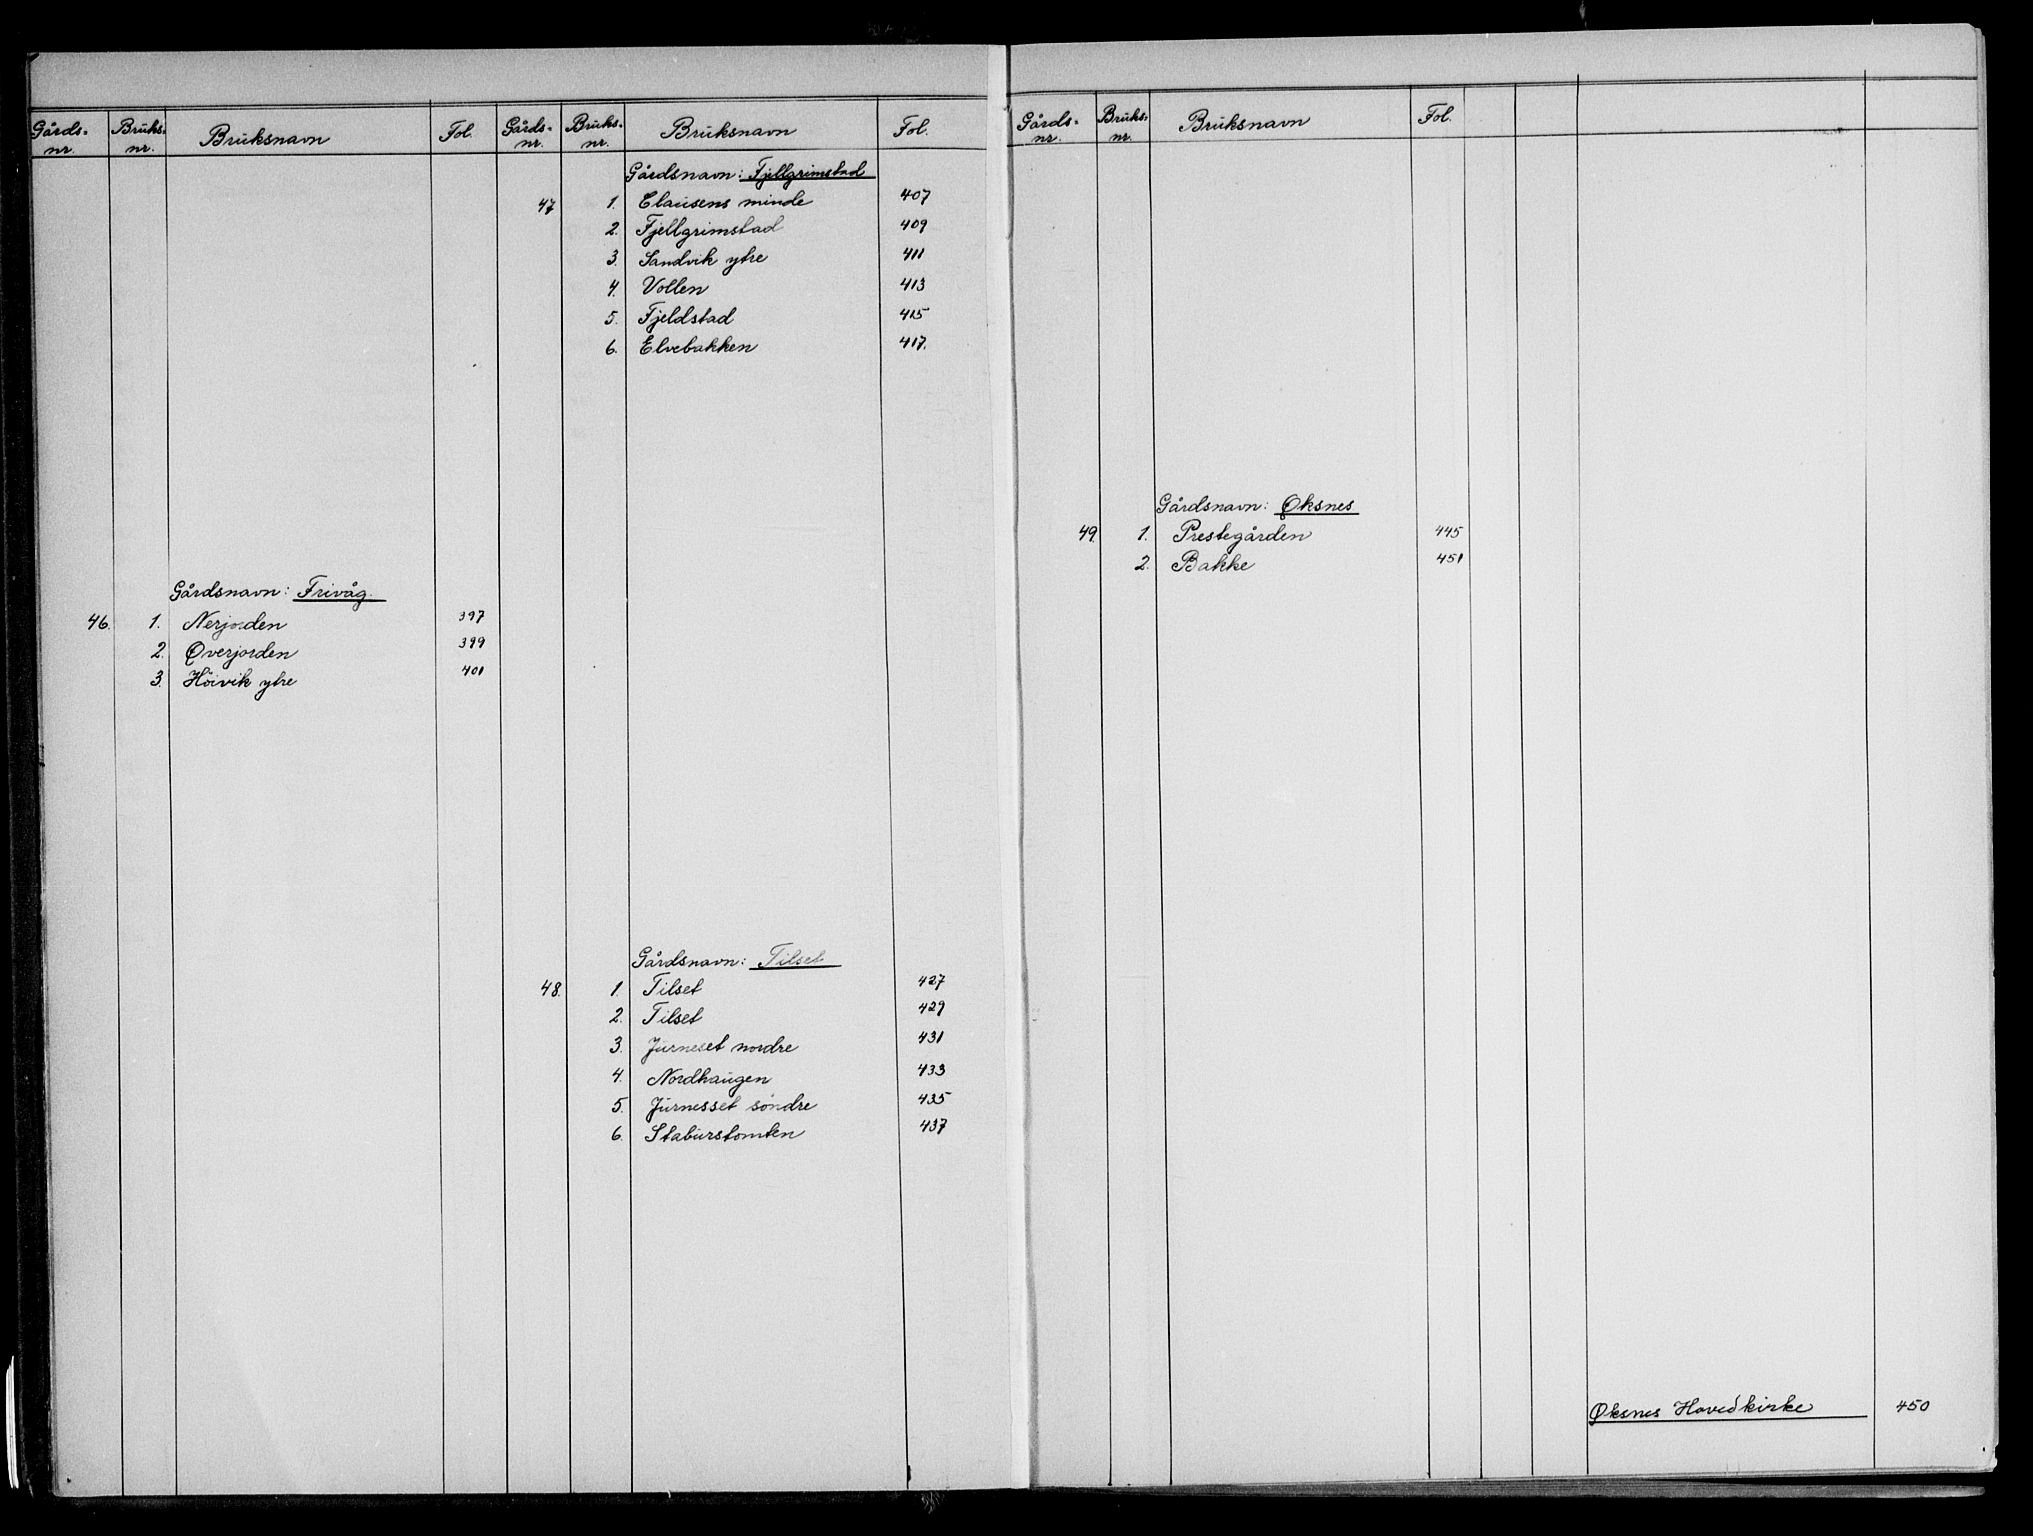 Gårds- Bruks- Bruksnavn Fol.
nr. nr.
Gårdsnavn: Frivåg.
46. 1. Nerjorden 397
2. Överjorden 399
3. Höivik ytre 401
Gårds- Bruks- Bruksnavn Fol.
nr. nr.
Gårdsnavn: Fjellgrimstad
47 1. Clausens minde 407
2. Fjellgrimstad 409
3. Sandvik ytre 411
4. Vollen 413
5. Fjeldstad 415
6. Elvebakken 417.
Gårdsnavn: Tilset
48. 1. Tilset 427
2. Tilset 429
3. Jurneset nordre 431
4. Nordhaugen 433
5. Jurnesset söndre 435
6. Staburstomten 437
Gårds- Bruks- Bruksnavn Fol.
nr. nr.
Gårdsnavn: Øksnes
49. 1. Prestegården 445
2. Bakke 451
Øksnes Hovedkirke 450